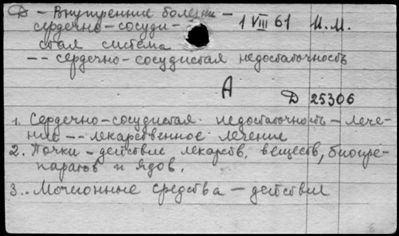 Д — Внутренние болезни —
сердечно-сосуди-
стая система
1 VIII 61 И.М.
-- сердечно-сосудистая недостаточность
А
Д 25306
1. Сердечно-сосудистая недостаточность — лече-
ние -- лекарственное лечение
2. Почки — действие лекарств. веществ, биопре-
паратов и ядов.
3. Мочегонные средства — действие